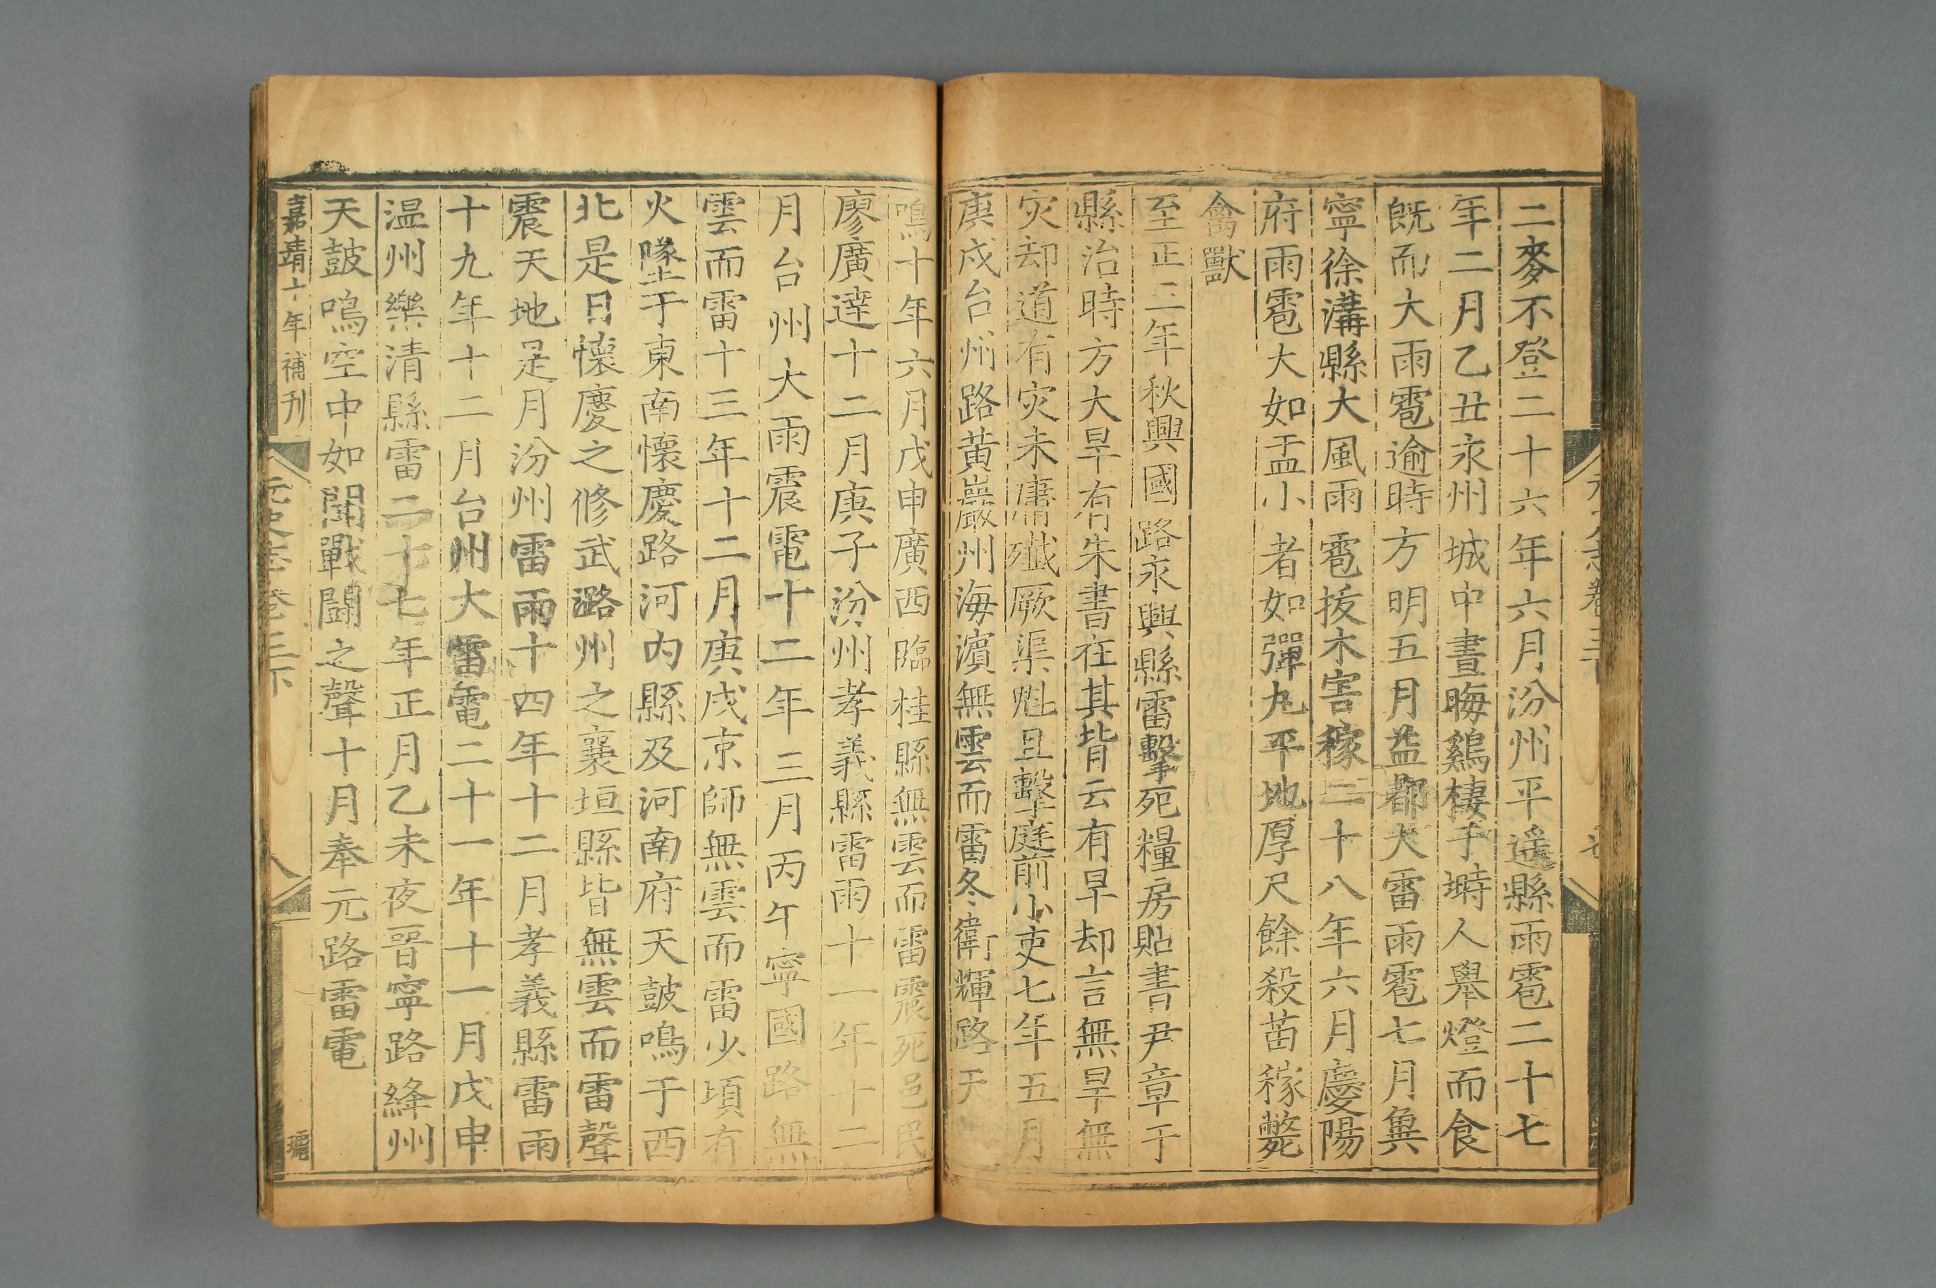 二麥不登二十六年六月汾州平遥縣雨雹二十七
年二月乙丑永州城中晝晦鷄棲于塒人舉燈而食
旣而大雨雹逾時方明五月益都大雷雨雹七月冀
寧徐溝縣大風雨雹拔木害稼二十八年六月慶陽
府雨雹大如盂小者如彈丸平地厚尺餘殺苗稼斃
禽獸
至正二年秋興國路永興縣雷擊死糧房貼書尹章于
縣治時方大旱有朱書在其背云有旱却言無旱無
灾却道有灾未庸殲厥渠魁且擊庭前小吏七年五月
庚戌台州路黄巖州海濱無雲而雷冬衛輝路天
鳴十年六月戊申廣西臨桂縣無雲而雷震死邑民
廖廣達十二月庚子汾州孝義縣雷雨十一年十二
月台州大雨震電十二年三月丙午寧國路無
雲而雷十三年十二月庚戌京師無雲而雷少頃有
火墜于東南懷慶路河内縣及河南府天鼓鳴于西
北是日懷慶之修武潞州之襄垣縣皆無雲而雷聲
震天地是月汾州雷雨十四年十二月孝義縣雷雨
十九年十二月台州大雷電二十一年十一月戊申
温州樂清縣雷二十七年正月乙未夜晋寧路絳州
天鼓鳴空中如聞戰鬬之聲十月奉元路雷電
嘉靖十年補刊
元史志卷三下
八